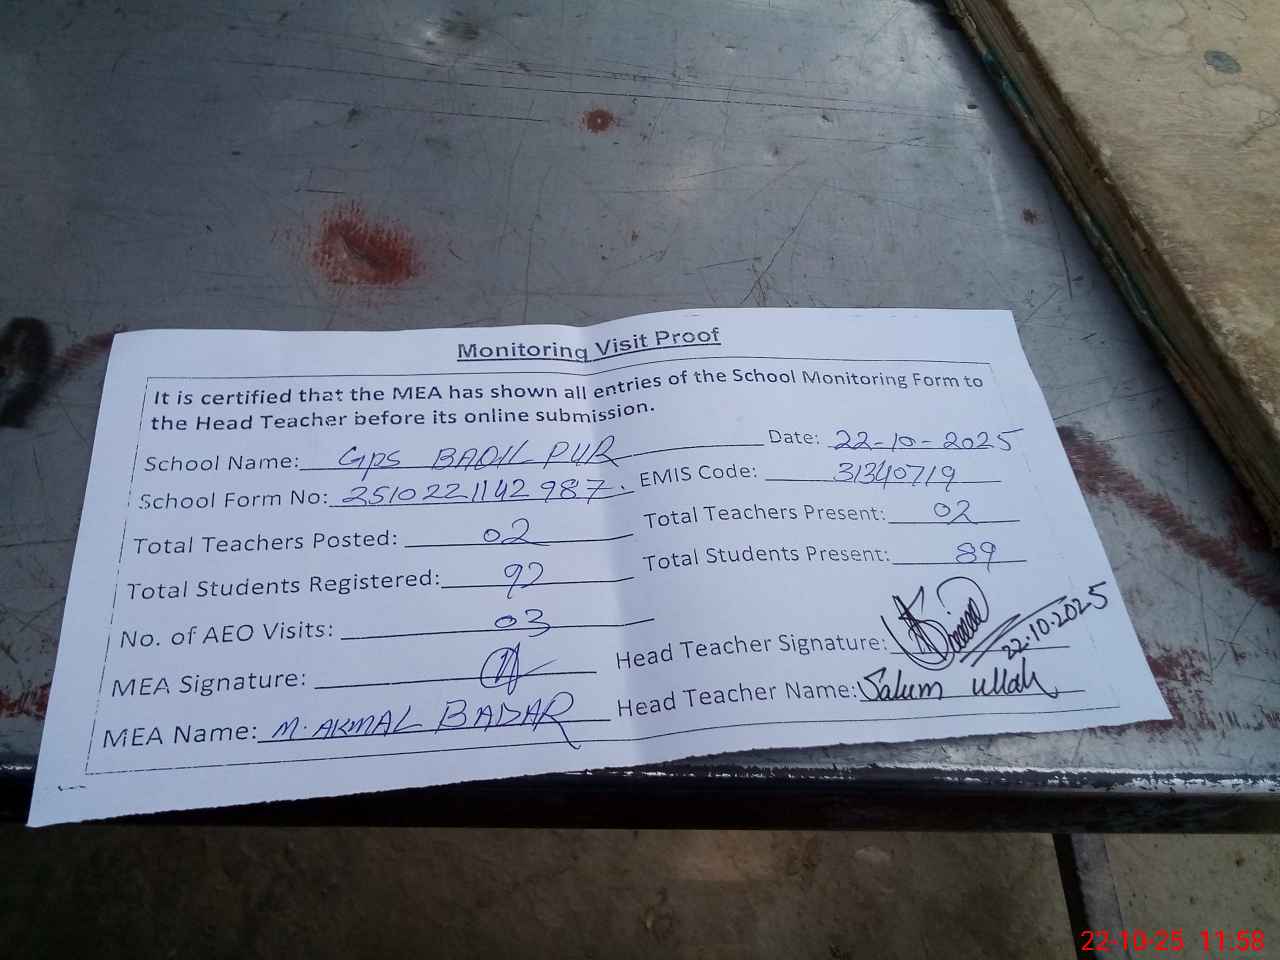 Monitoring Visit Proof
It is certified that the MEA has shown all entries of the School Monitoring Form to
the Head Teacher before its online submission.
School Name: GPS BADIL PUR Date: 22-10-2025
School Form No: 2510221142987. EMIS Code: 31340719
Total Teachers Posted: 02 Total Teachers Present: 02
Total Students Registered: 92 Total Students Present: 89
No. of AEO Visits: 03
MEA Signature: Head Teacher Signature: 22.10.2025
MEA Name: M. AKMAL BADAR Head Teacher Name: Salum ullah
22-10-25 11:58